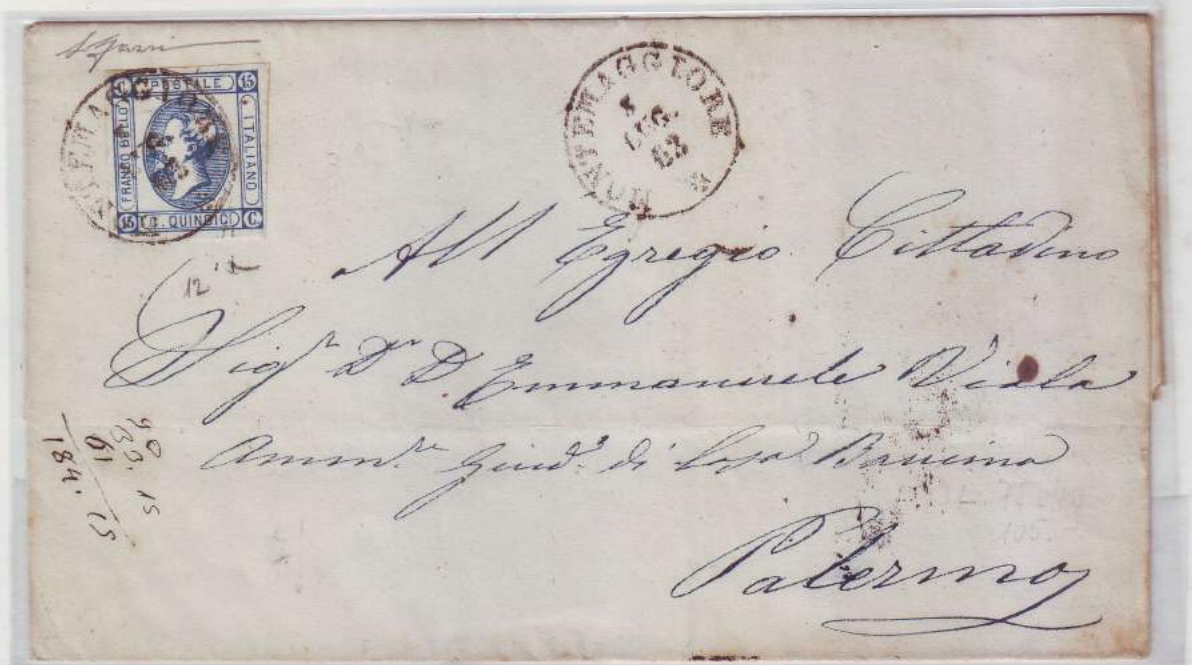 C POSTALE 15
FRANCO BOLLO
ITALIANO
15 C. QUINDICI C
MONTEMAGGIORE
MONTEMAGGIORE
5
LUG.
63
12
All Egregio Cittadino
Sigr Dr D Emmanuele Viola
Ammre Giudo di Casa Baucina
Palermo
90
33. 15
61
184. 15